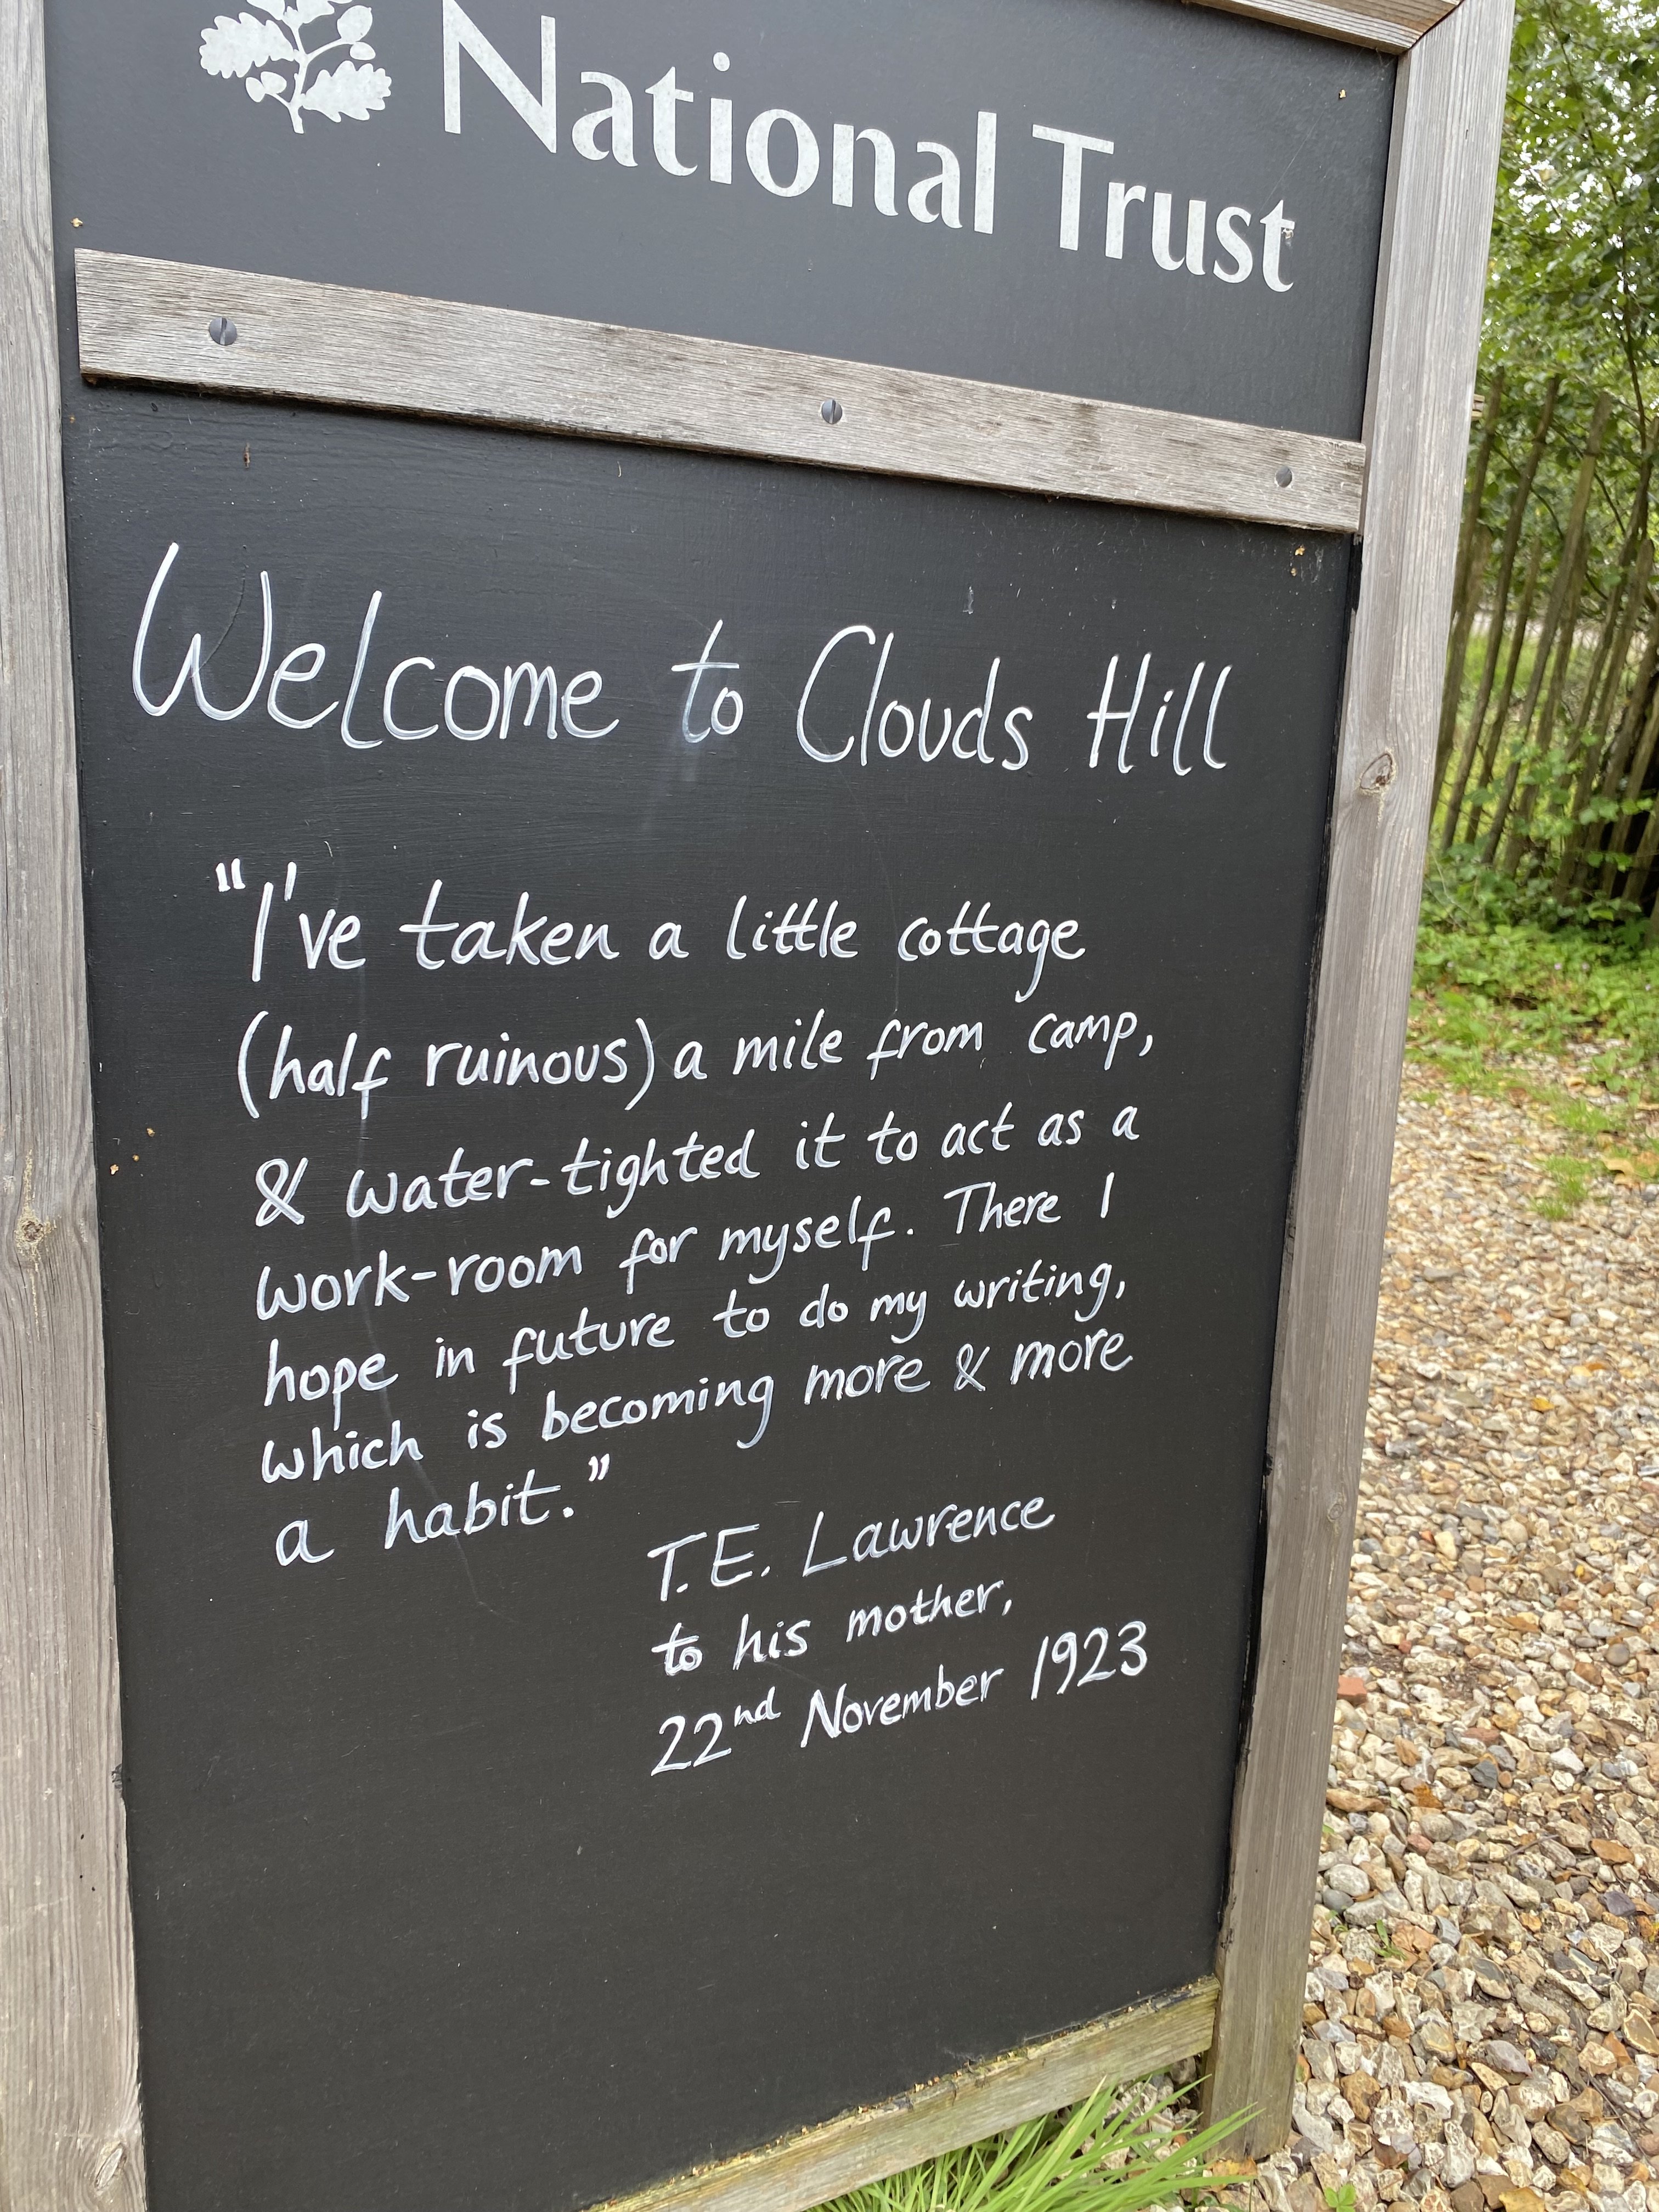 National Trust
Welcome to Clouds Hill
"I've taken a little cottage
(half ruinous) a mile from camp,
& water-tighted it to act as a
work-room for myself. There I
hope in future to do my writing,
which is becoming more & more
a habit."
T.E. Lawrence
to his mother,
22nd November 1923